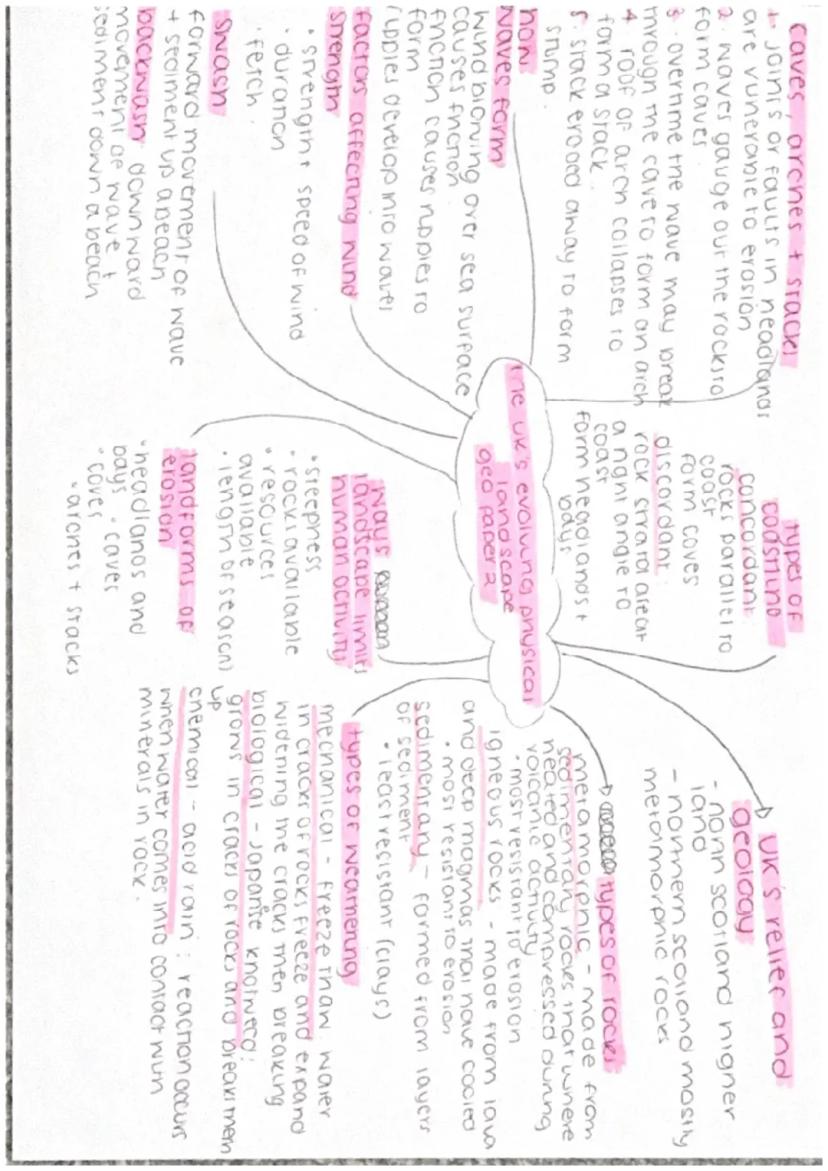 caves, arches + stacks
1. joints or faults in headlands
are vunerable to erosion
2. waves gauge out the rocks to
form caves
3. overtime the wave may break
through the cave to form an arch
4. roof of arch collapses to
form a stack
5. stack eroded away to form
stump.
how
waves form
wind blowing over sea surface
causes friction
friction causes ripples to
form
ripples develop into waves
factors affecting wind
strength
• strength + speed of wind
• duration
• fetch.
swash
forward movement of wave
+ sediment up a beach
backwash downward
movement of wave +
sediment down a beach
types of
coastline
concordant
rocks parallel to
coast
form coves
discordant:
rock strata are at
a right angle to
coast
form headlands +
bays
The UK's evolving physical
landscape
geo paper 2
ways
landscape limits
human activity
• steepness
• rock available
• resources
available
• length of season
landforms of
erosion
• headlands and
bays • caves
• coves
• arches + stacks
UK's relief and
geology
- north scotland higher
land
- northern scotland mostly
metamorphic rocks
types of rocks
metamorphic - made from
sedimentary rocks that where
heated and compressed during
volcanic activity
• most resistant to erosion
igneous rocks - made from lava
and deep magmas that have cooled
• most resistant to erosion
sedimentary - formed from layers
of sediment
• least resistant (clays)
types of weathering
mechanical - freeze thaw: water
in cracks of rocks freeze and expand
widening the cracks then breaking
biological - Japanse knotweed:
grows in cracks of rocks and break them
up
chemical - acid rain: reaction occurs
when water comes into contact with
minerals in rock.